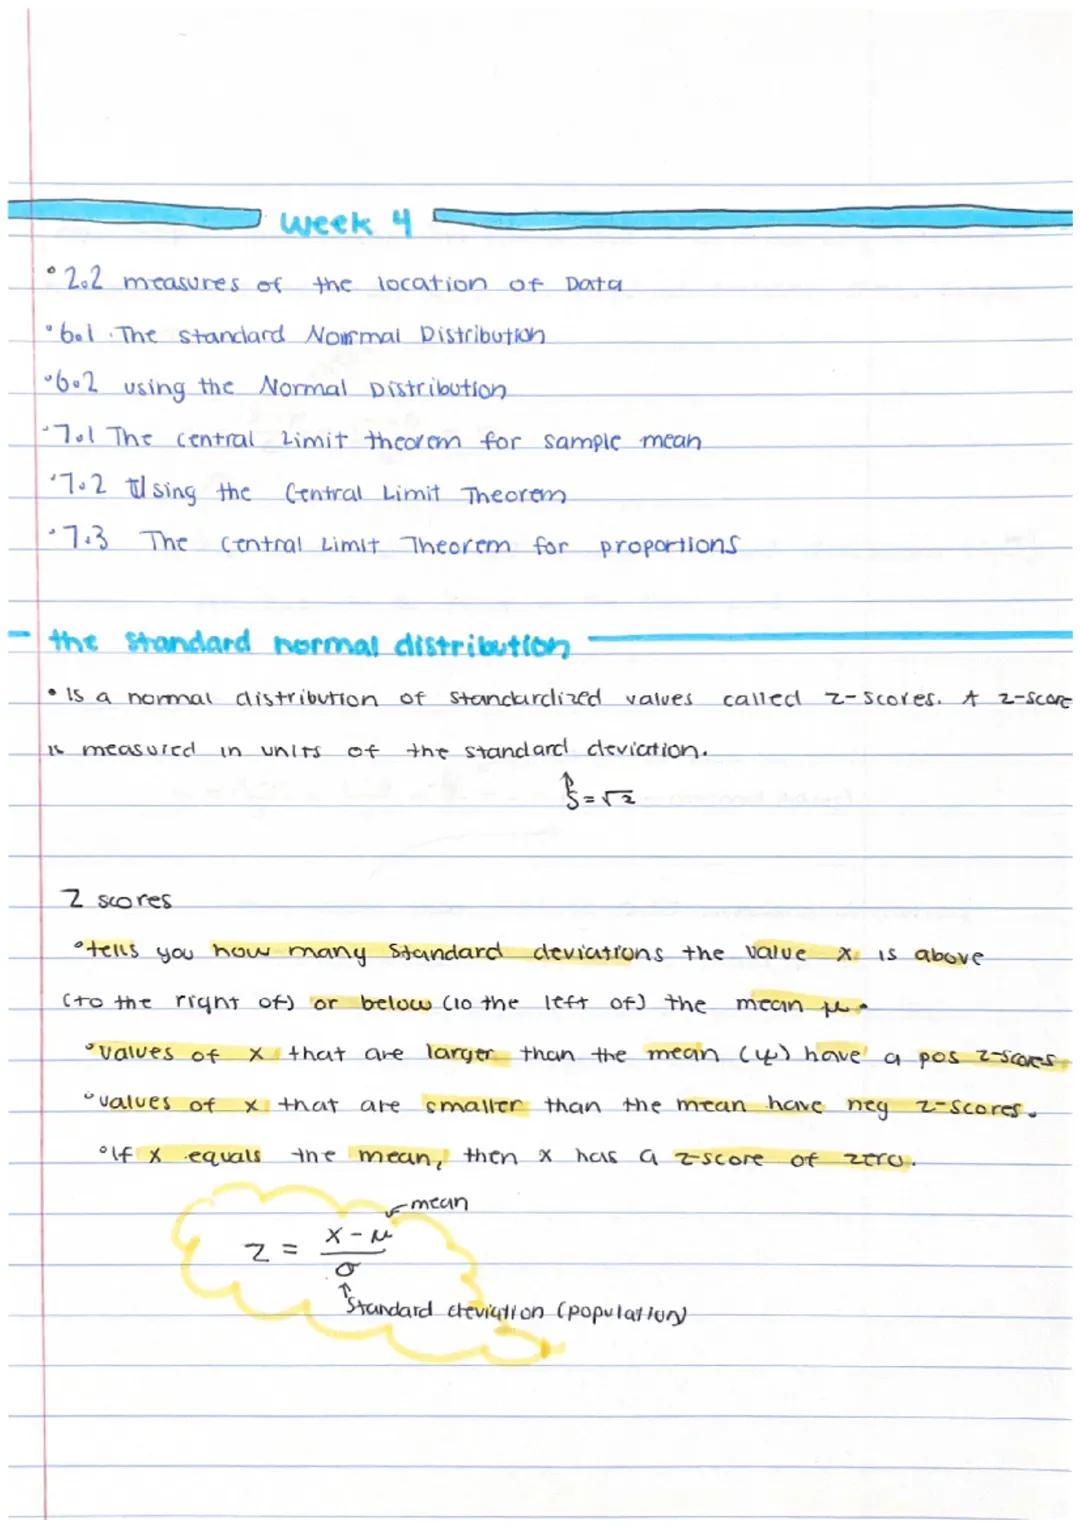 Week 4
• 2.2 measures of the location of Data
• 6.1 The standard Normal Distribution
• 6.2 using the Normal Distribution
• 7.1 The central Limit theorem for sample mean
• 7.2 Using the Central Limit Theorem
• 7.3 The Central Limit Theorem for proportions
the standard normal distribution
• is a normal distribution of standardized values called z-scores. A z-score
is measured in units of the standard deviation.
S=√2
Z scores
• tells you how many standard deviations the value x is above
(to the right of) or below (to the left of) the mean μ.
• values of x that are larger than the mean (μ) have a pos z-scores
• values of x that are smaller than the mean have neg z-scores.
• If x equals the mean, then x has a z-score of zero.
mean
z = x - μ
σ
standard deviation (population)